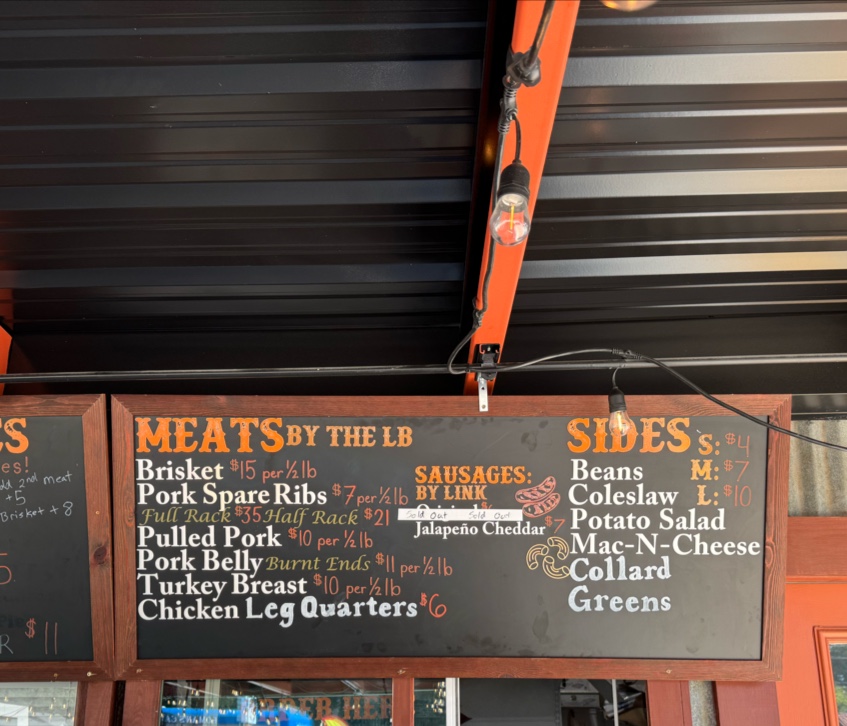 ES
es!
dd 2nd meat
+5
Brisket + 8
5
R $11
MEATS BY THE LB
Brisket $15 per ½ lb
Pork Spare Ribs $7 per ½ lb
Full Rack $35 Half Rack $21
Pulled Pork $10 per ½ lb
Pork Belly Burnt Ends $11 per ½ lb
Turkey Breast $10 per ½ lb
Chicken Leg Quarters $6
SAUSAGES:
BY LINK
Sold Out Sold Out
Jalapeño Cheddar $7
SIDES S: $4
Beans M: $7
Coleslaw L: $10
Potato Salad
Mac-N-Cheese
Collard
Greens